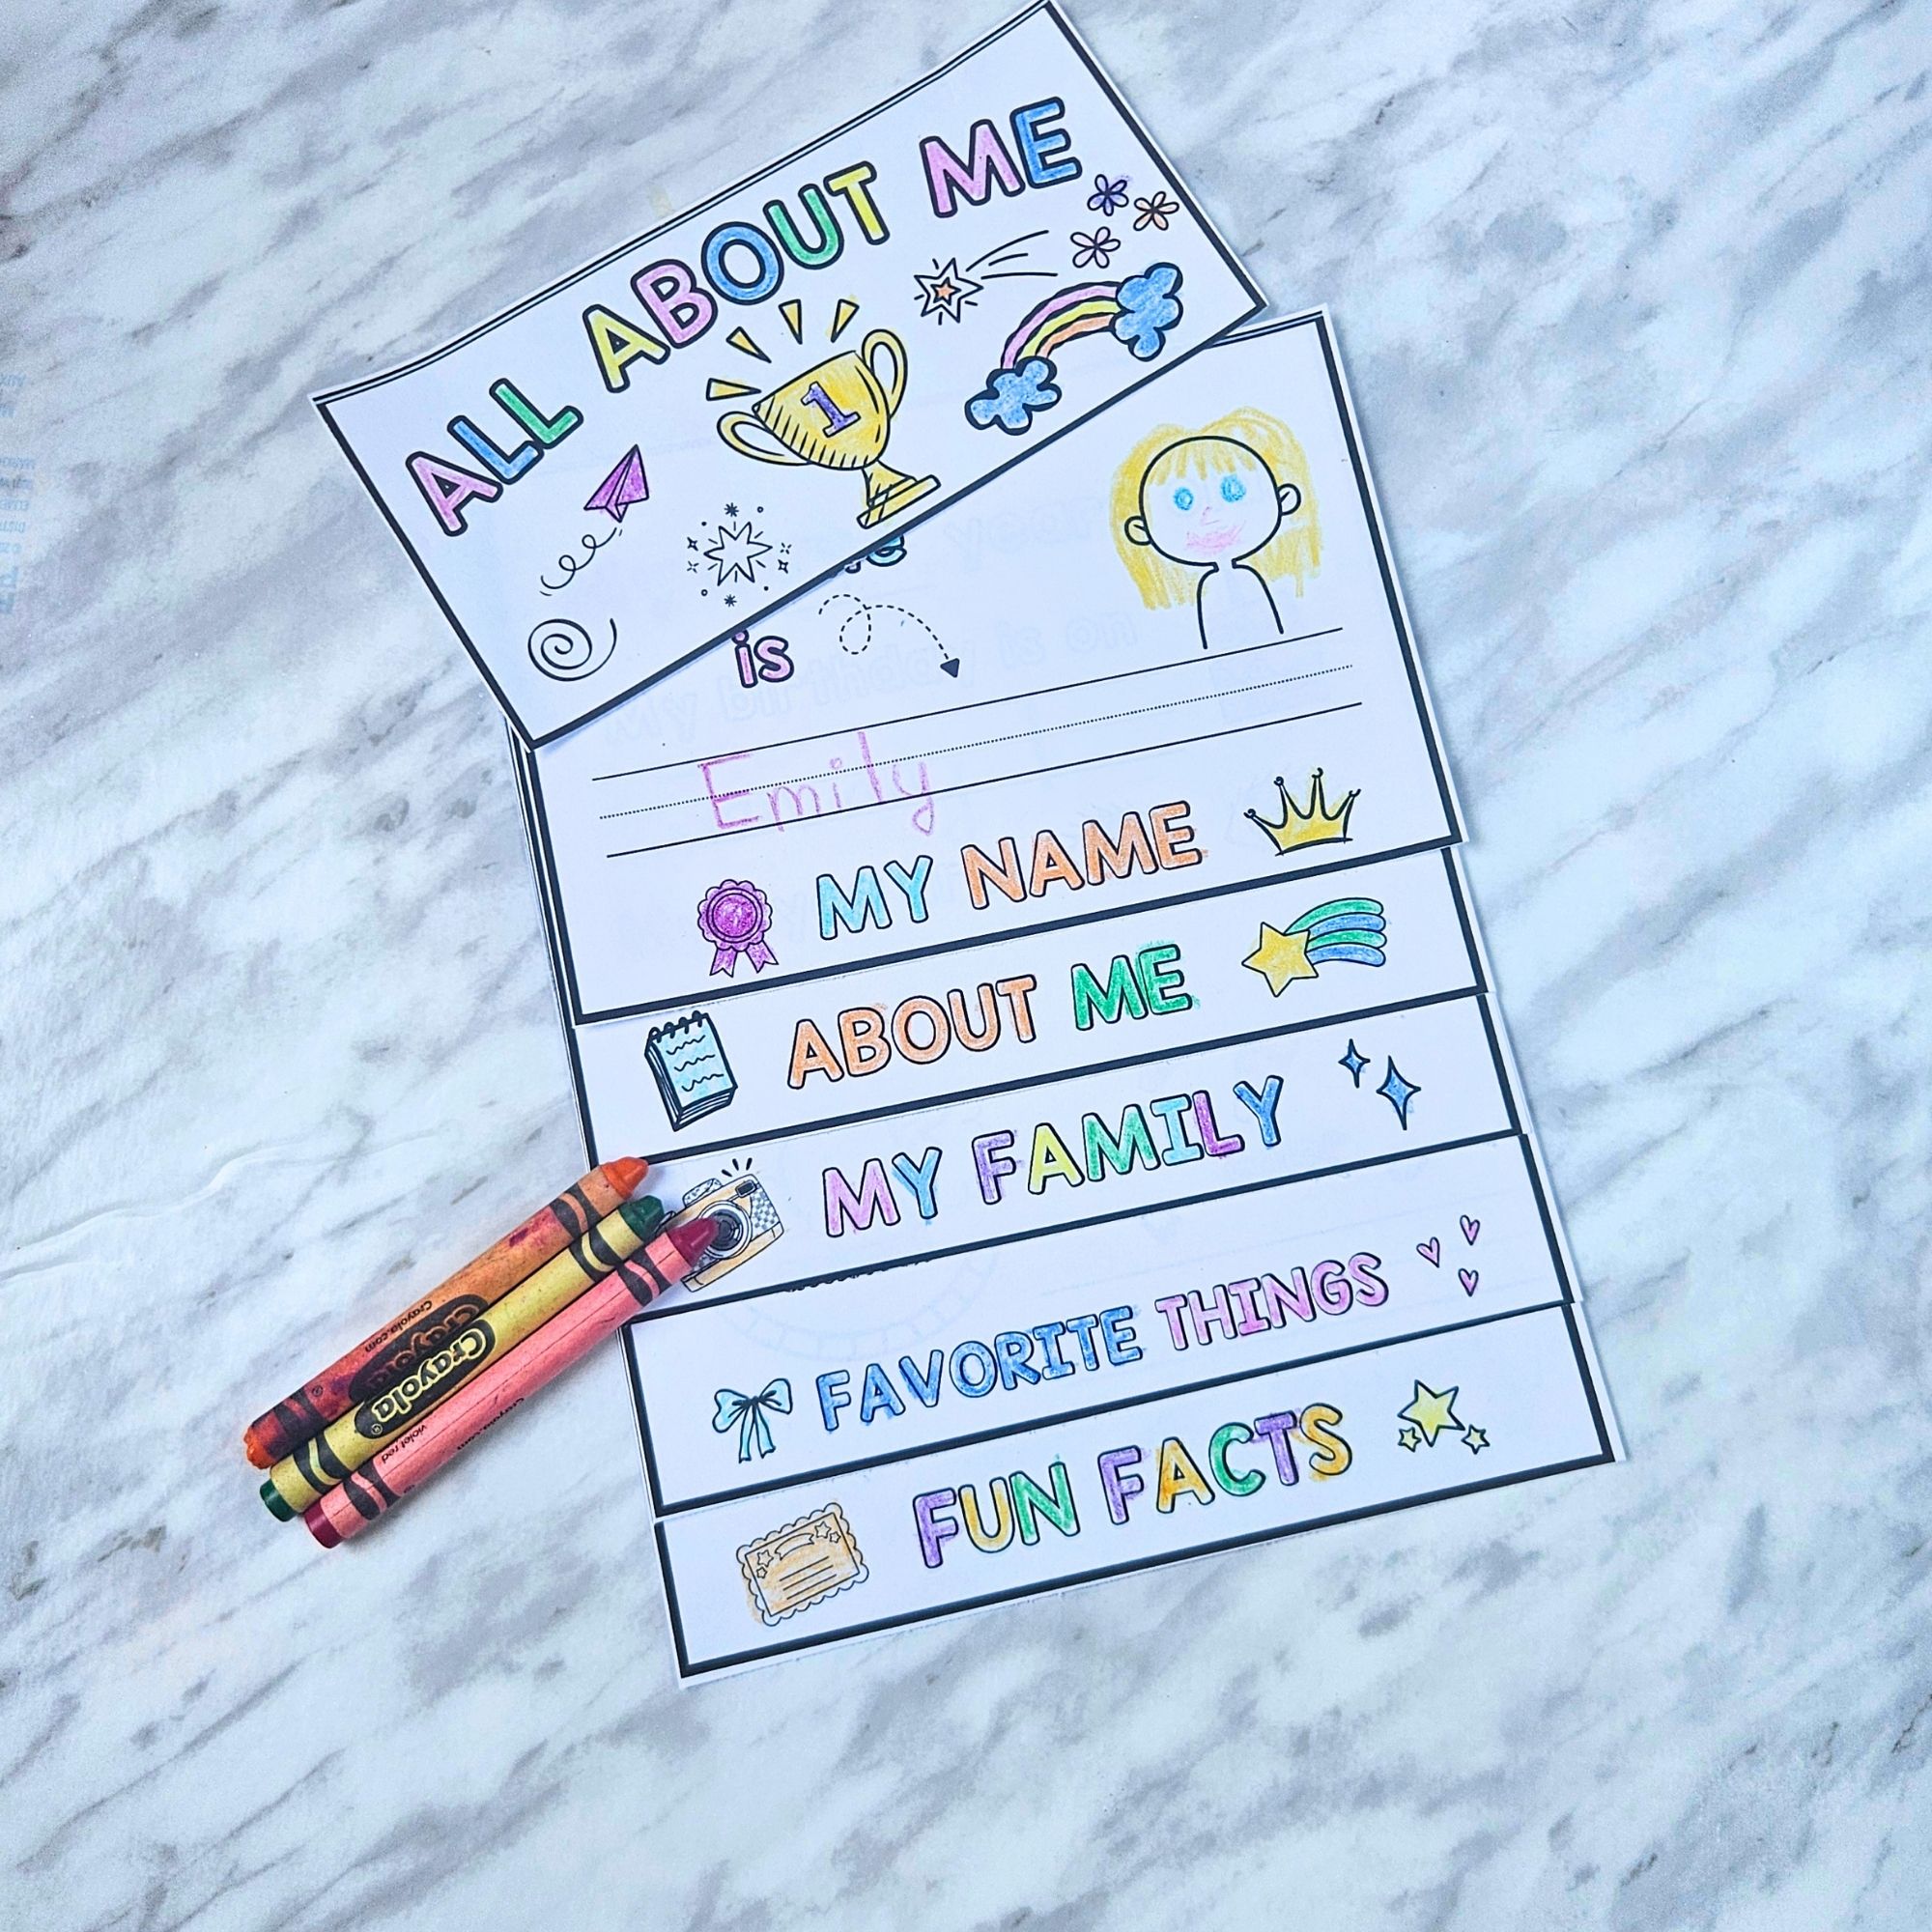 ALL ABOUT ME
1
is
Emily
MY NAME
ABOUT ME
MY FAMILY
FAVORITE THINGS
FUN FACTS
Crayola.com
Crayola
Crayola
violet red